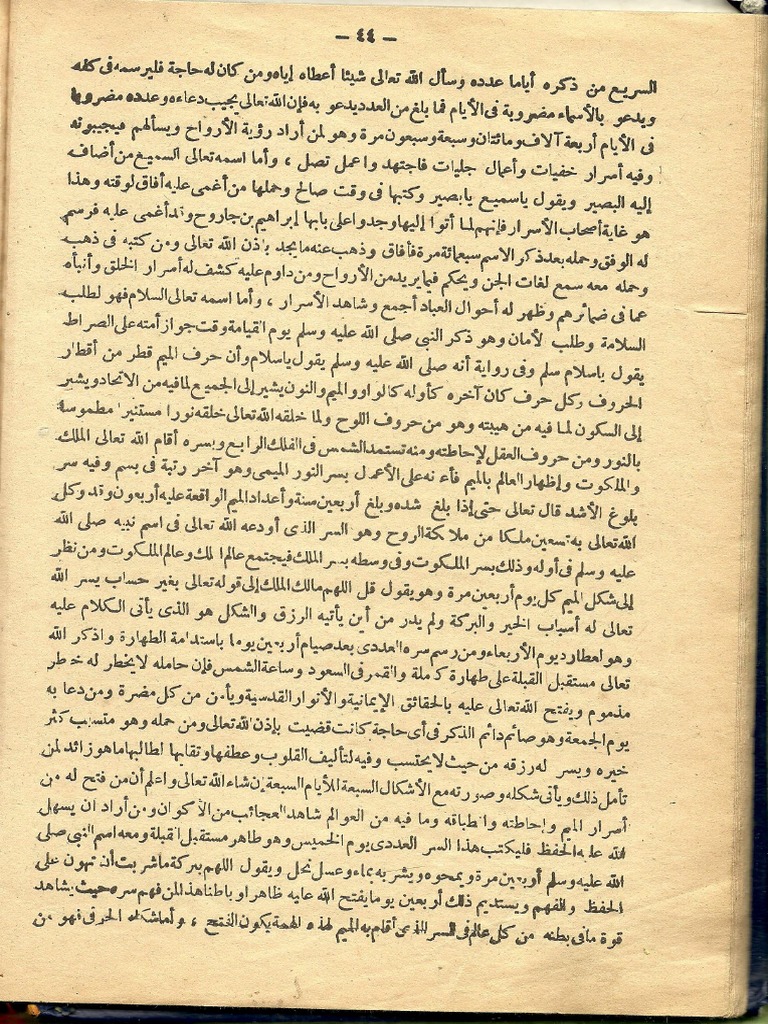 — ٤٤ —
السريع من ذكره أياما عدده وسأل الله تعالى شيئا أعطاه إياه ومن كان له حاجة فليرسمه فى كفه
ويدعو بالأسماء مضروبة فى الأيام فما بلغ من العدد يدعو به فإن الله تعالى يجيب دعاءه وعدده مضروبا
فى الأيام أربعة آلاف ومائتان وسبعة وسبعون مرة وهو لمن أراد رؤية الأرواح ويسألهم فيجيبونه
وفيه أسرار خفيات وأعمال جليات فاجتهد واعمل تصل ، وأما اسمه تعالى السميع من أضاف
إليه البصير ويقول ياسميع يابصير وكتبها فى وقت صالح وحملها من أغمى عليه أفاق لوقته وهذا
هو غاية أصحاب الأسرار فإنهم لما أتوا إليها وجدوا على بابها إبراهيم بن جاروح وقد أغمى عليه فرسم
له الوفق وحمله بعد ذكر الاسم سبعمائة مرة فأفاق وذهب عنه مايجد بإذن الله تعالى ومن كتبه فى ذهب
وحمله معه سمع لغات الجن ويحكم فيما يريد من الأرواح ومن داوم عليه كشف له أسرار الخلق وأنبأه
عما فى ضمائرهم وظهر له أحوال العباد أجمع وشاهد الأسرار ، وأما اسمه تعالى السلام فهو لطلب
السلامة وطلب لأمان وهو ذكر النبي صلى الله عليه وسلم يوم القيامة وقت جواز أمته على الصراط
يقول ياسلام سلم وفى رواية أنه صلى الله عليه وسلم يقول ياسلام وأن حرف الميم قطر من أقطار
الحروف وكل حرف كان آخره كأوله كالواو والميم والنون يشير إلى الجميع لما فيه من الاتحاد ويشير
إلى السكون لما فيه من هيبته وهو من حروف اللوح ولما خلقه الله تعالى خلقه نورا مستنيرا مطموسا
بالنور ومن حروف العقل لإحاطته ومنه تستمد الشمس فى الفلك الرابع وبسره أقام الله تعالى الملك
والملكوت وإظهار العالم بالميم نه على الأعمال بسر النور الميمى وهو آخر رتبة فى بسم وفيه سر
بلوغ الأشد قال تعالى حتى إذا بلغ أشده وبلغ أربعين سنة وأعداد الميم الواقعة عليه أربعون وقد وكل
الله تعالى به تسعين ملكا من ملائكة الروح وهو السر الذى أودعه الله تعالى فى اسم نبيه صلى الله
عليه وسلم فى أوله وذلك بسر الملكوت وفى وسطه بسر الملك فيجتمع عالم الملك وعالم الملكوت ومن نظر
إلى شكل الميم كل يوم أربعين مرة وهو يقول قل اللهم مالك الملك إلى قوله تعالى بغير حساب يسر الله
تعالى له أسباب الخير والبركة ولم يدر من أين يأتيه الرزق والشكل هو الذى يأتى الكلام عليه
وهو لعطارد يوم الأربعاء ومن رسم سره العددى بعد صيام أربعين يوما باستدامة الطهارة واذكر الله
تعالى مستقبل القبلة على طهارة كاملة والقمر فى السعود وساعة الشمس فإن حامله لايخطر له خاطر
مذموم ويفتح الله تعالى عليه بالحقائق الإيمانية والأنوار القدسية ويأمن من كل مضرة ومن دعا به
يوم الجمعة وهو صائم دائم الذكر فى أى حاجة كانت قضيت بإذن الله تعالى ومن حمله وهو متسبب كثر
خيره ويسر له رزقه من حيث لا يحتسب وفيه لتأليف القلوب وعطفها وتقابها لطالبها ماهو زائد لمن
تأمل ذلك ويأتى شكله وصورته مع الأشكال السبعة للأيام السبعة إن شاء الله تعالى واعلم أن من فتح له من
أسرار الميم وإحاطته وانطباقه وما فيه من العوالم شاهد العجائب من الأكوان ومن أراد ان يسهل
الله عليه الحفظ فليكتب هذا السر العددى يوم الخميس وهو طاهر مستقبل القبلة ومعه اسم النبى صلى
الله عليه وسلم أربعين مرة ويمحوه ويشربه بماء وعسل نحل ويقول اللهم ببركة ماشربت أن تهون على
الحفظ والفهم ويستديم ذلك أربعين يوما يفتح الله عليه ظاهرا وباطنا هذا لمن فهم سره حيث يشاهد
قوة مافى بطنه من كل عالم فى السر الذى أقام به الميم لهذه الهمة يكون الفتح ، وأما شكله الحرفى فهو من